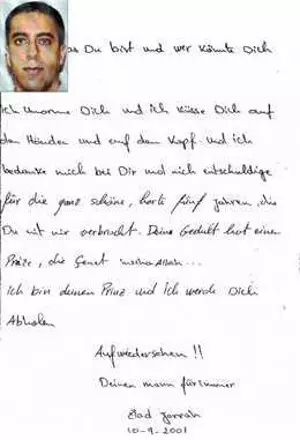 as Du bist und wer könnte Dich
ich umarme Dich und ich küsse Dich auf
den Händen und auf dem Kopf. und ich
bedanke mich bei Dir und mich entschuldige
für die ganz schöne, harte fünf jahren, die
Du mit mir verbracht. Deine Gedult hat einen
Preize, die Genet inschaAllah...
ich bin deinen Prinz und ich werde Dich
Abholen
Aufwiedersehen !!
Deinen mann für immer
Ziad Jarrah
10-9-2001